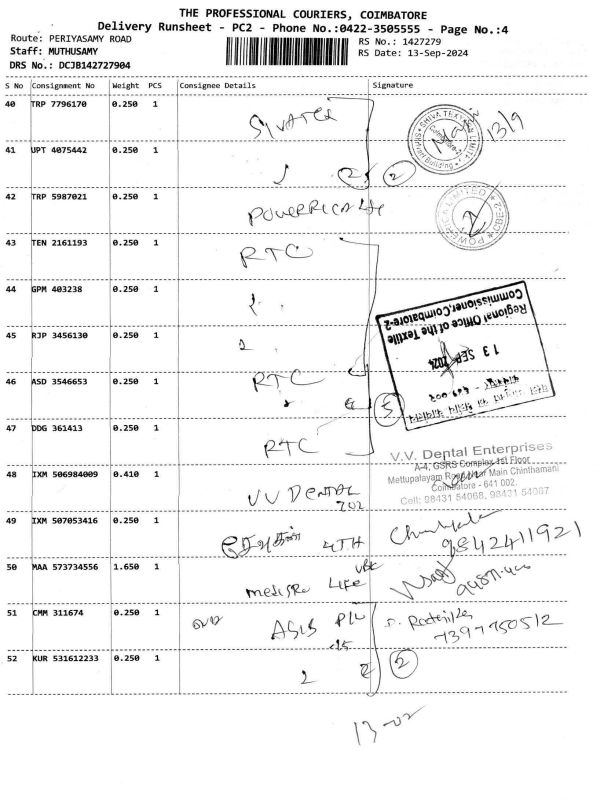 THE PROFESSIONAL COURIERS, COIMBATORE
Delivery Runsheet - PC2 - Phone No.:0422-3505555 - Page No.:4
Route: PERIYASAMY ROAD
Staff: MUTHUSAMY
DRS No.: DCJB142727904
RS No.: 1427279
RS Date: 13-Sep-2024
S No Consignment No Weight PCS Consignee Details Signature
40 TRP 7796170 0.250 1
13/9
41 UPT 4075442 0.250 1
2 2
42 TRP 5987021 0.250 1
POWERICA LIMITED CBE-2
43 TEN 2161193 0.250 1 RTC
44 GPM 403238 0.250 1
Regional Office of the Textile
Commissioner, Coimbatore-2
13 SEP 2024
45 RJP 3456130 0.250 1
46 ASD 3546653 0.250 1 RTC
5
47 DDG 361413 0.250 1 RTC
V.V. Dental Enterprises
A-4, GSRS Complex 1st Floor
Mettupalayam Road Near Main Chinthamani
Coimbatore - 641 002.
Cell: 98431 54068, 98431 54067
48 IXM 506984009 0.410 1 VV Dental
202
49 IXM 507053416 0.250 1
9842411921
50 MAA 573734556 1.650 1 LIFE
51 CMM 311674 0.250 1
7397750512
52 KUR 531612233 0.250 1
2 2 2
13-02